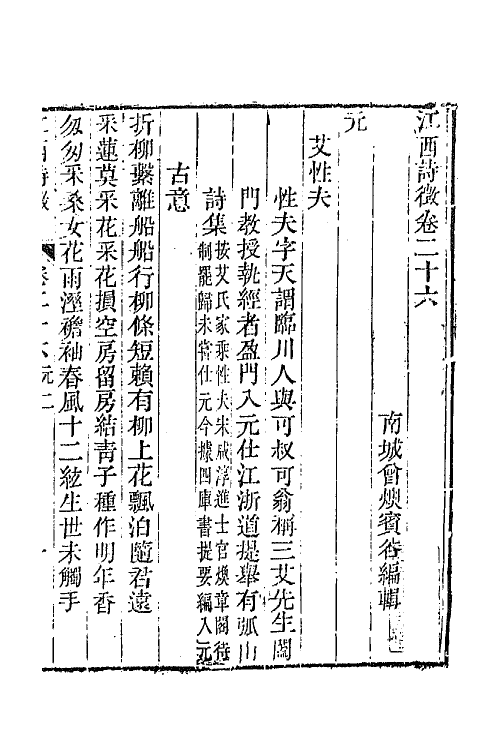 江西詩徵卷二十六
南城曾燠賓谷編輯
元
艾性夫
性夫字天謂臨川人與可叔可翁稱三艾先生闔
門教授執經者盈門入元仕江浙道提舉有弧山
詩集
按艾氏家乘性夫宋咸淳進士官煥章閣待
制罷歸未嘗仕元今據四庫書提要編入元
古意
折柳繫離船船行柳條短賴有柳上花飄泊隨君遠
采蓮莫采花采花損空房留房結靑子種作明年香
匆匆采桑女花雨溼襜袖春風十二絃生世未觸手
江西詩徵
卷二十六元
一